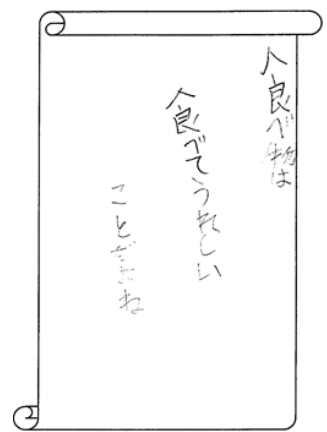 食べ物は
食べてうれしい
ことだよね